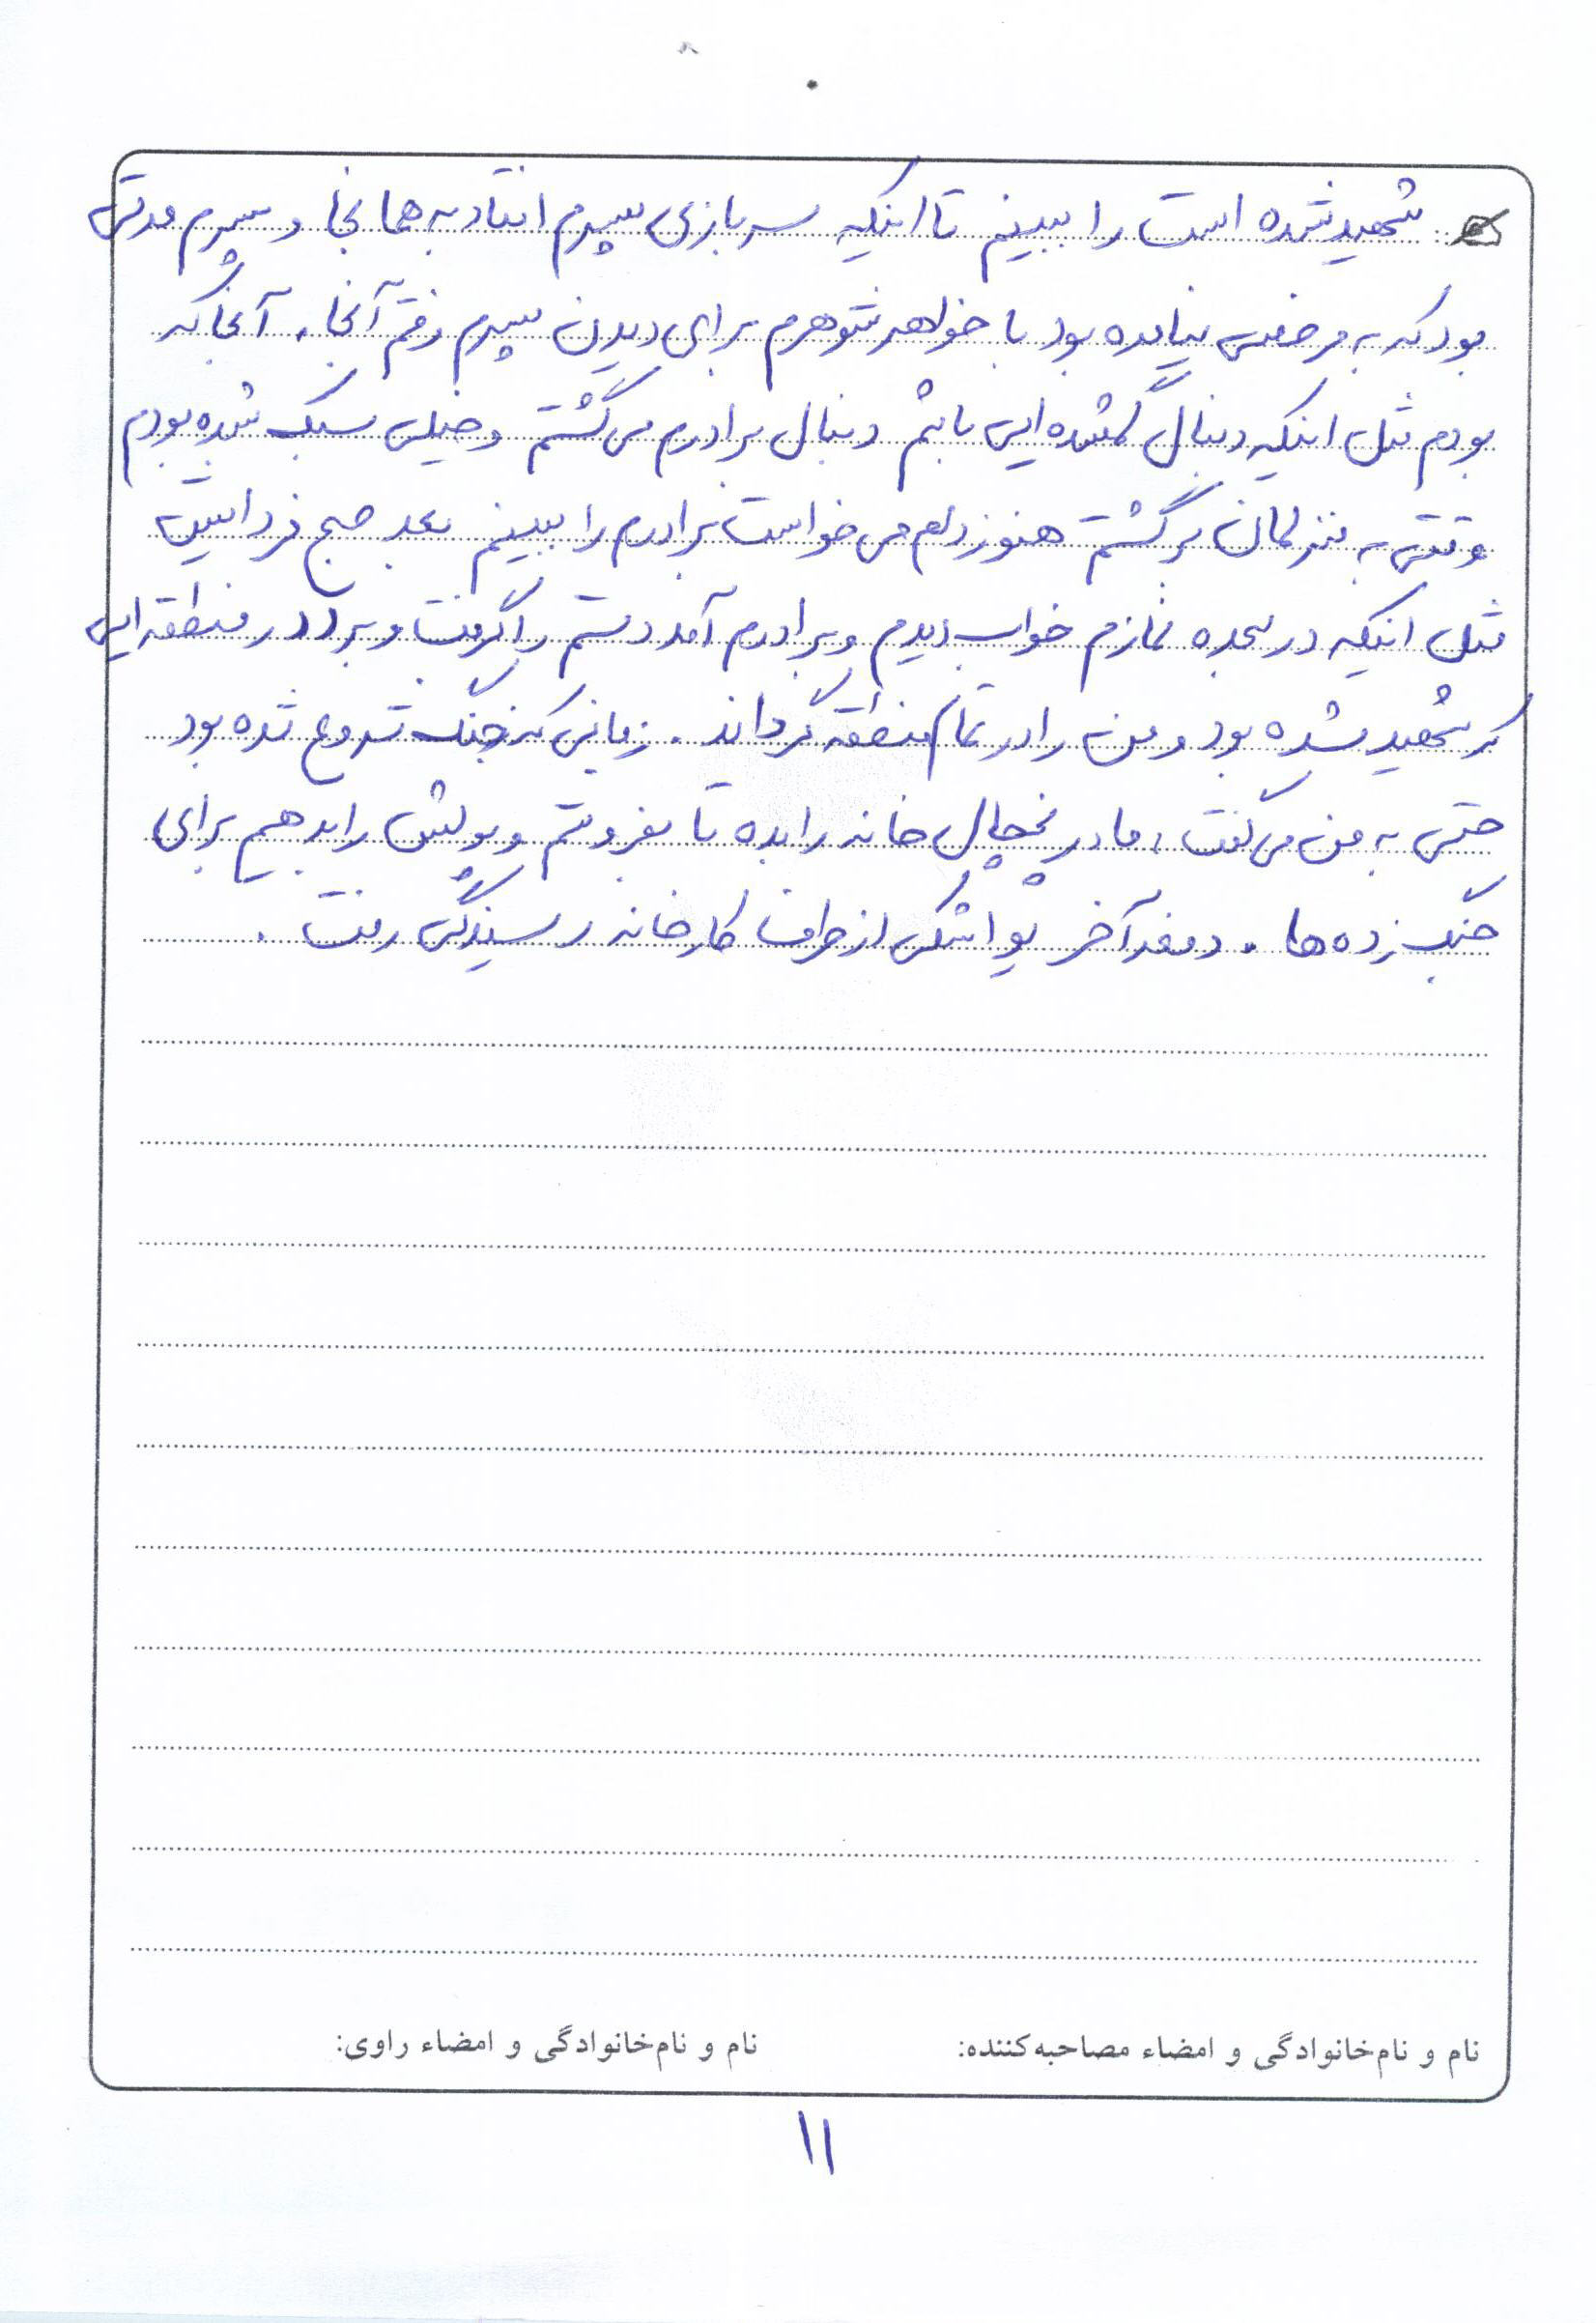 شهید شده است را ببینم تا اینکه سربازی پسرم افتاد به همانجا و پسرم مدتی
بود که به مرخصی نیامده بود با خواهر شوهرم برای دیدن پسرم رفتم آنجا. آنجا که
بودم مثل اینکه دنبال گمشده ایی باشم دنبال برادرم می گشتم و خیلی سبک شده بودم
وقتی به منزلمان برگشتم هنوز دلم می خواست برادرم را ببینم بعد صبح فردایش
مثل اینکه در سجده نمازم خواب دیدم و برادرم آمد دستم را گرفت و برد در منطقه ایی
که شهید شده بود و من را در تمام منطقه گرداند. زمانی که جنگ شروع شده بود
حتی به من می گفت: مادر یخچال خانه را بده تا بفروشم و پولش را بدهیم برای
جنگ زده ها. دفعه آخر یواشکی از طرف کارخانه ریسندگی رفت.
نام و نام‌خانوادگی و امضاء مصاحبه‌کننده: نام و نام‌خانوادگی و امضاء راوی:
۱۱